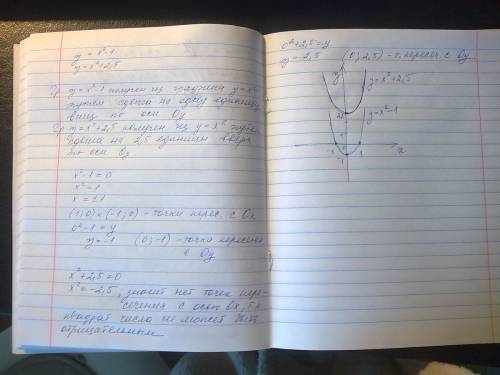 y = x²-1
y = x²+2,5
Гр. y = x²-1 получен из графика y = x²
путем сдвига на одну единицу
вниз по оси Oy
Гр. y = x²+2,5 получен из y = x² путем
сдвига на 2,5 единицы вверх
по оси Ox
x²-1=0
x²=1
x = ±1
(1;0) и (-1;0) - точки перес. с Ox
0²-1=y
y=-1 (0;-1) - точка пересеч.
с Oy
x²+2,5=0
x²=-2,5, значит нет точек пере-
сечения с осью Ox, т.к
квадрат числа не может быть
отрицательным
0²+2,5=y
y=-2,5 (0;2,5) - т. пересеч. с Oy
y=x²+2,5
y=x²-1
-1 1 x
-1